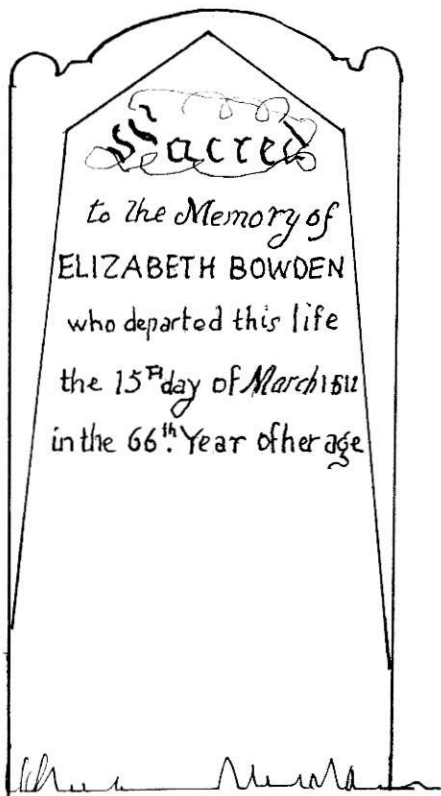 Sacred
to the Memory of
ELIZABETH BOWDEN
who departed this life
the 15th day of March
in the 66th. Year of her age